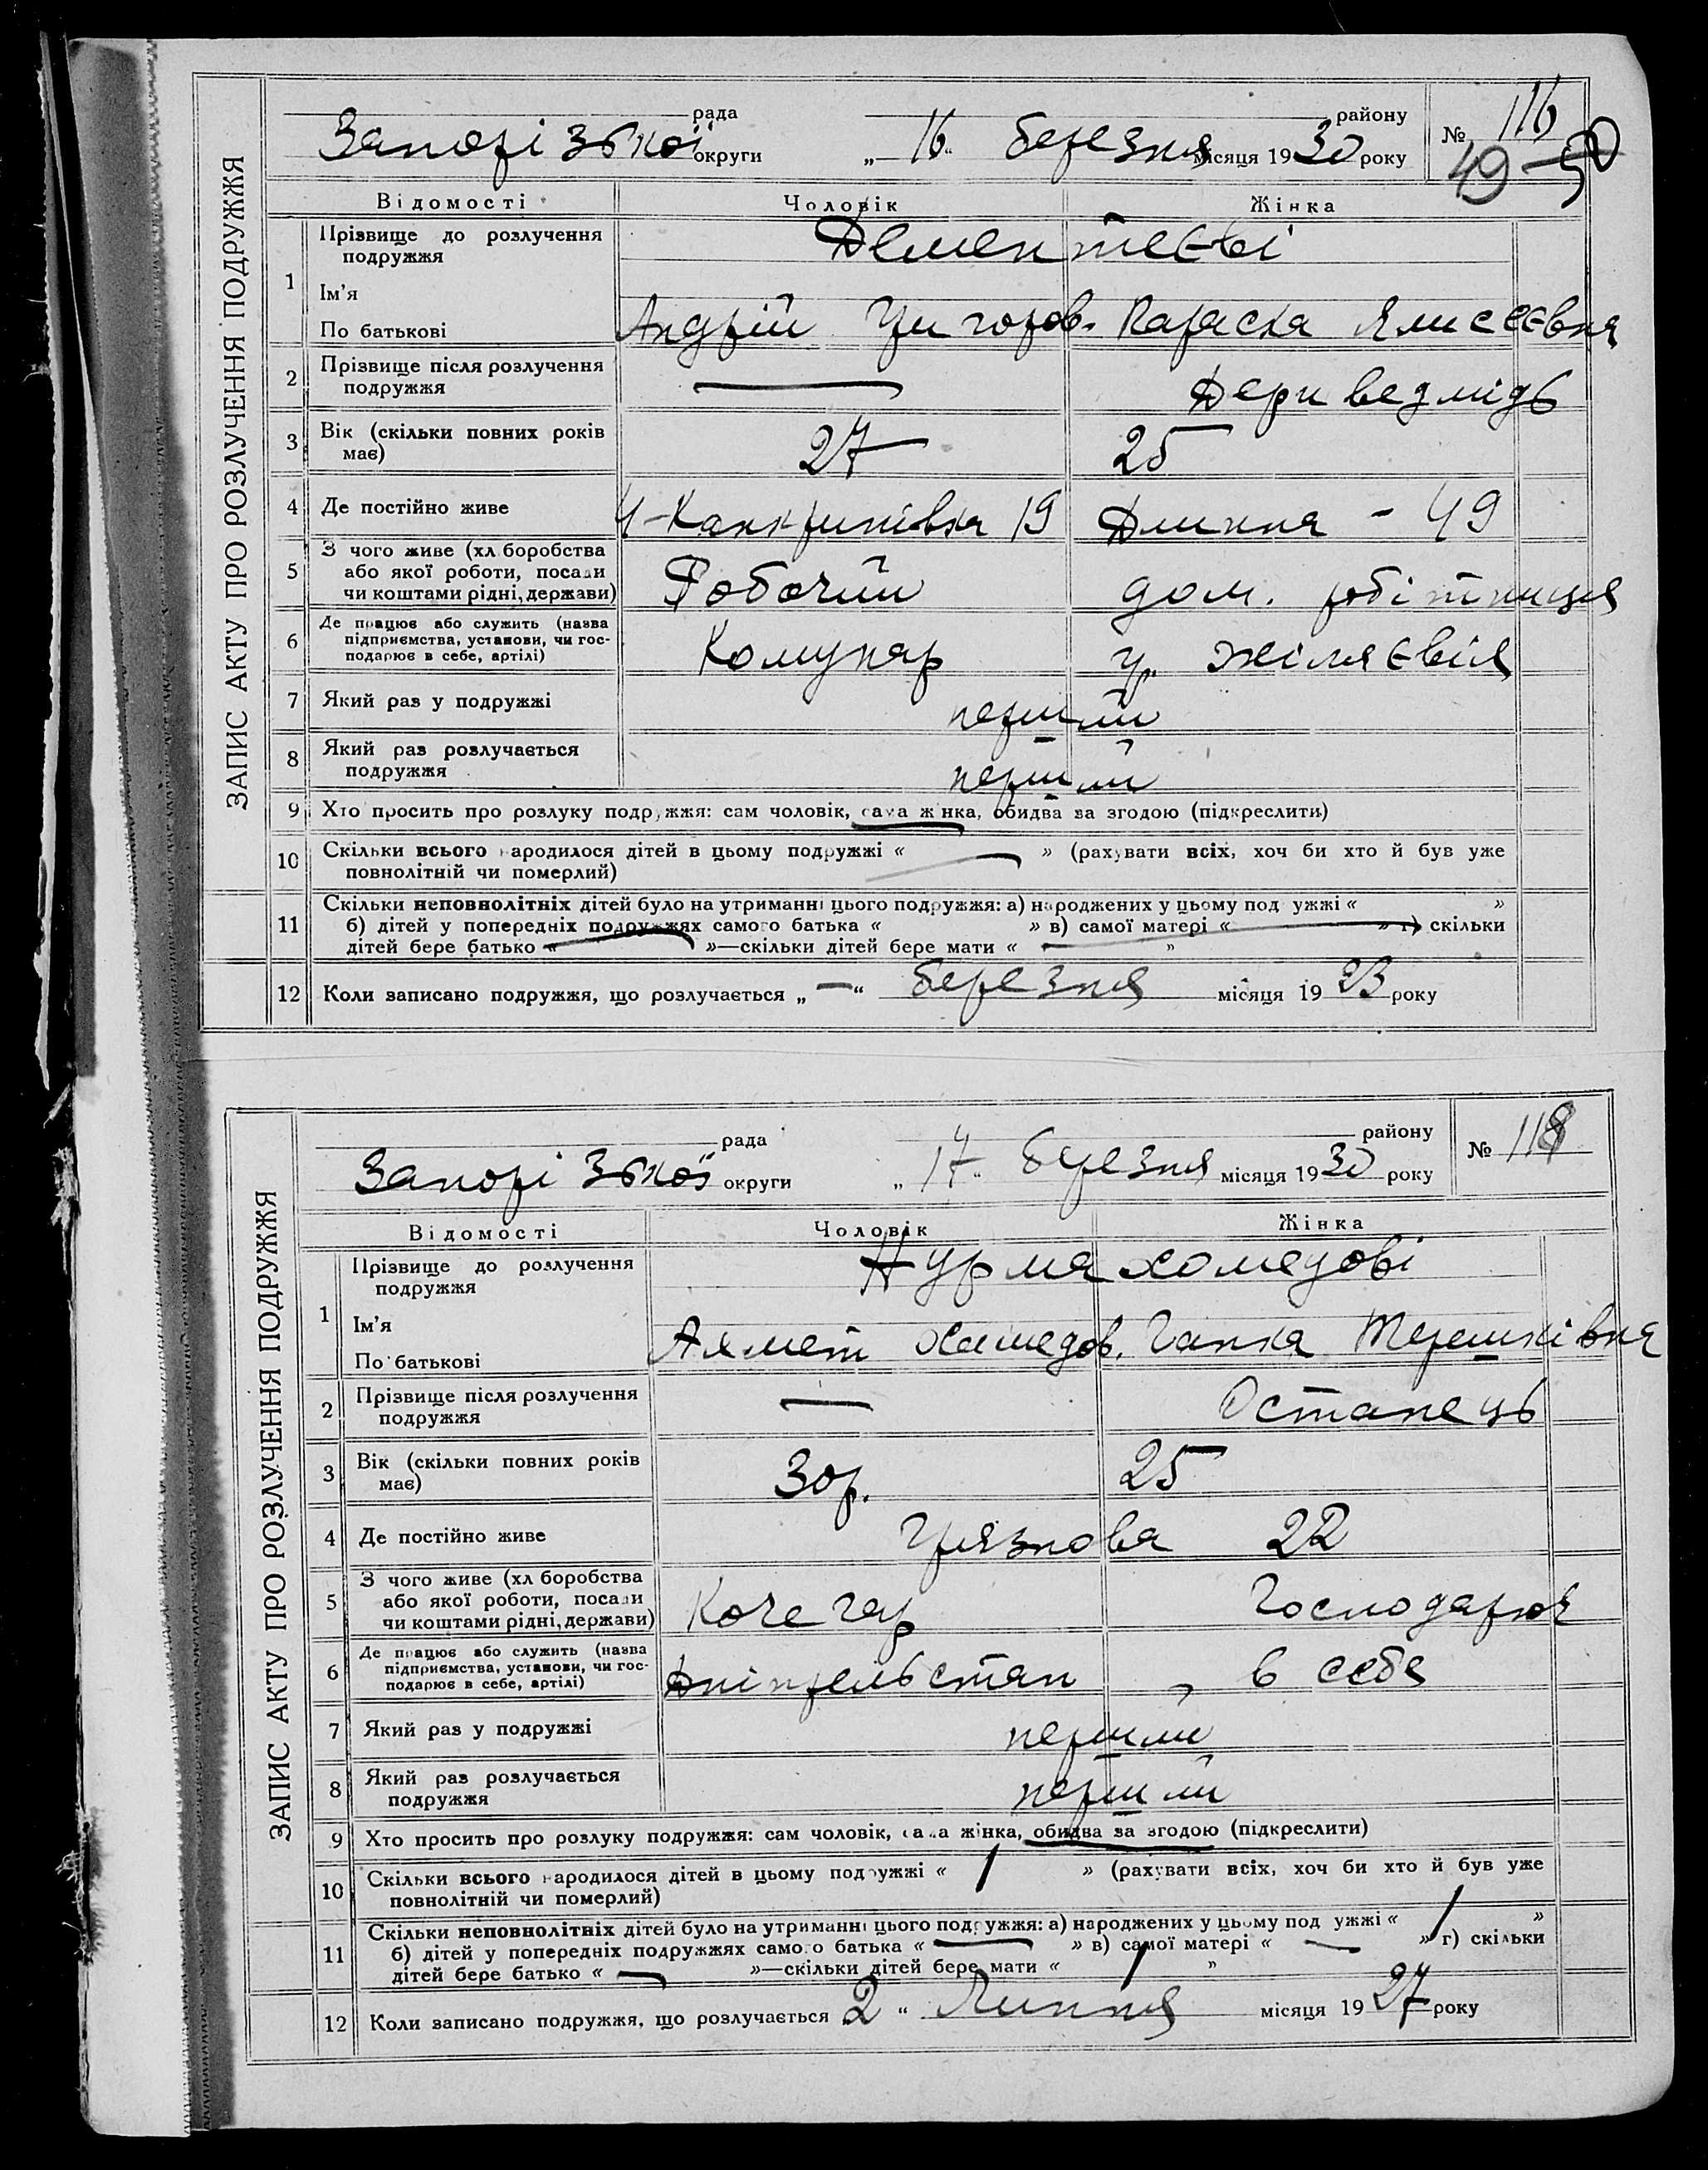 ЗАПИС АКТУ ПРО РОЗЛУЧЕННЯ ПОДРУЖЖЯ
рада району № 116
Запорізької округи „ 16 “ березня місяця 1930 року 49-50
Відомості Чоловік Жінка
1 Прізвище до розлучення подружжя Дементєєві
Ім'я
По батькові Андрій Григоров. Параска Ялисеєвна
2 Прізвище після розлучення — Дериведмідь
подружжя
3 Вік (скільки повних років 27 25
має)
4 Де постійно живе 4-Канкринівка 19 Длинна - 49
5 З чого живе (хліборобства
або якої роботи, посади Робочий дом. робітниця
чи коштами рідні, держави)
6 Де працює або служить (назва
підприємства, установи, чи гос- Комунар гр.
подарює в себе, артілі)
7 Який раз у подружжі перший
8 Який раз розлучається перший
подружжя
9 Хто просить про розлуку подружжя: сам чоловік, сама жінка, обидва за згодою (підкреслити)
10 Скільки всього народилося дітей в цьому подружжі « — » (рахувати всіх, хоч би хто й був уже
повнолітній чи померлий)
11 Скільки неповнолітніх дітей було на утриманні цього подружжя: а) народжених у цьому подружжі « »
б) дітей у попередніх подружжях самого батька « » в) самої матері « — » г) скільки
дітей бере батько « — »—скільки дітей бере мати « — »
12 Коли записано подружжя, що розлучається „ — “ березня місяця 1923 року
ЗАПИС АКТУ ПРО РОЗЛУЧЕННЯ ПОДРУЖЖЯ
рада району № 118
Запорізької округи „ 17 “ березня місяця 1930 року
Відомості Чоловік Жінка
1 Прізвище до розлучення подружжя Нурмахомедові
Ім'я
По батькові Ахмет Хамедов. Ганна Терешківна
2 Прізвище після розлучення — Остапець
подружжя
3 Вік (скільки повних років 30р. 25
має)
4 Де постійно живе Грязнова 22
5 З чого живе (хліборобства
або якої роботи, посади Кочегар Господарює
чи коштами рідні, держави)
6 Де працює або служить (назва
підприємства, установи, чи гос- Дніпрельстан в себе
подарює в себе, артілі)
7 Який раз у подружжі перший
8 Який раз розлучається перший
подружжя
9 Хто просить про розлуку подружжя: сам чоловік, сама жінка, обидва за згодою (підкреслити)
10 Скільки всього народилося дітей в цьому подружжі « 1 » (рахувати всіх, хоч би хто й був уже
повнолітній чи померлий)
11 Скільки неповнолітніх дітей було на утриманні цього подружжя: а) народжених у цьому подружжі « 1 »
б) дітей у попередніх подружжях самого батька « — » в) самої матері « — » г) скільки
дітей бере батько « — »—скільки дітей бере мати « 1 »
12 Коли записано подружжя, що розлучається 2 “ Липня місяця 1927 року